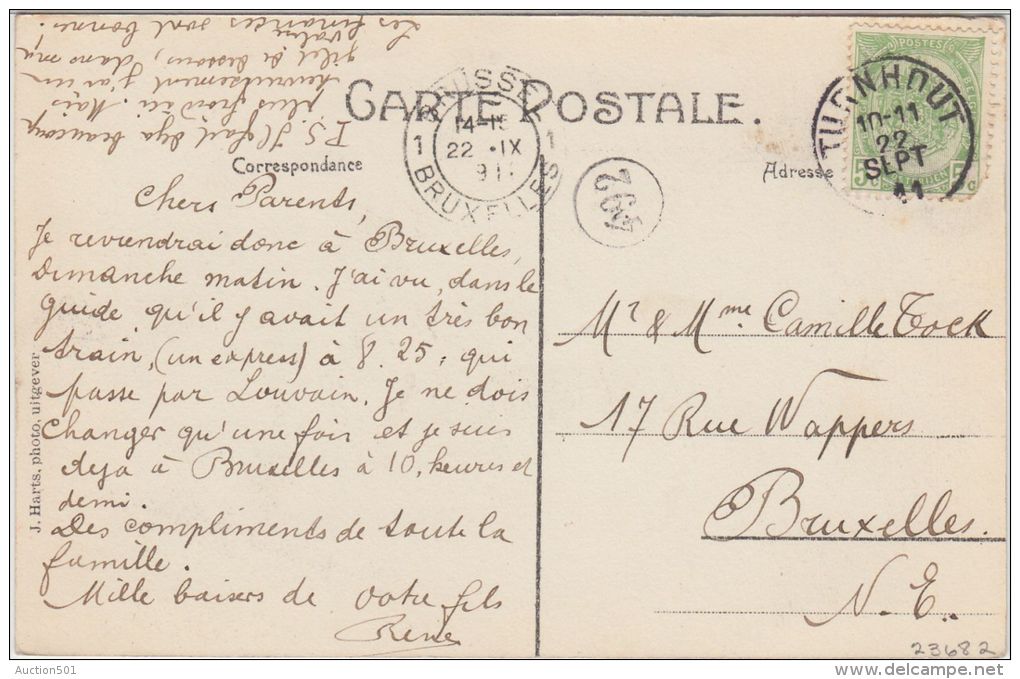 CARTE POSTALE.
Correspondance
Adresse
Chers Parents,
Je reviendrai donc à Bruxelles,
Dimanche matin. J'ai vu, dans le
guide, qu'il y avait un très bon
train, (un express) à 8.25; qui
passe par Louvain. Je ne dois
changer qu'une fois et je suis
deja à Bruxelles à 10, heures et
demi.
Des compliments de toute la
famille.
Mille baisers de votre fils
René
P.S. Il fait deja beaucoup
plus froid ici. Mais
heureusement j'ai un
gilet de dessous, dans ma
valise
Les finances sont bonnes!
Mr & Mme Camille Tock
17 Rue Wappers
Bruxelles.
N.E.
J. Harts, photo, uitgever
BRUSSEL
14-15
1 22 .IX 1
911
BRUXELLES
TURNHOUT
10-11
22
SEPT
11
POSTES
5c 5c
23682
Auction501
www.delcampe.net